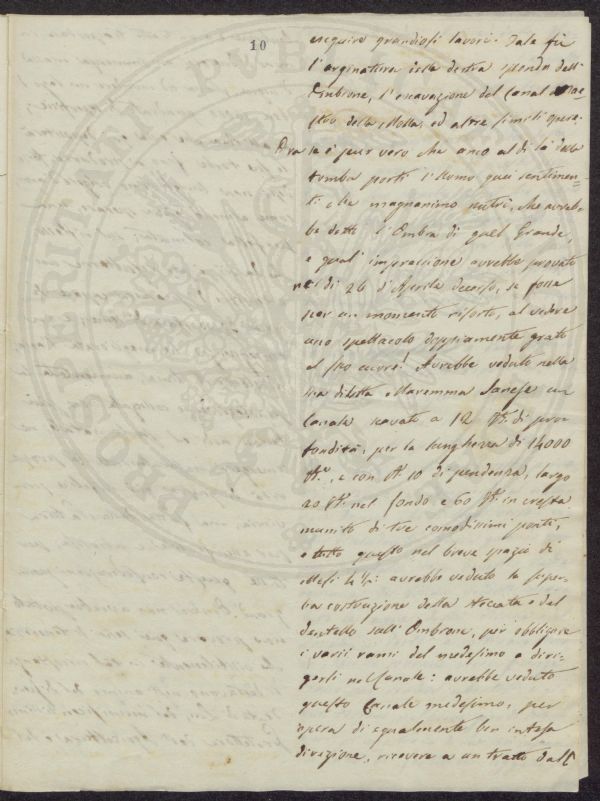 10
eseguire grandiosi lavori. Tale fu
l'arginatura della destra sponda dell'
Ombrone, l'escavazione del Canal Mae=
stro della Molla, ed altre simili opere.
Ora se è pur vero che anco al di là della
tomba porti l'Uomo quei sentimen=
ti che magnanimo nutrì, che avreb=
be detto l'Ombra di quel Grande,
e quali impressione avrebbe provato
nel dì 26 d'Aprile decorso, se fosse
per un momento risorto, al vedere
uno spettacolo doppiamente grato
al suo cuore! Avrebbe veduto nella
sua diletta Maremma Sanese un
Canale scavato a 12 Bra. di pro=
fondità, per la lunghezza di 14000
Bra., e con Bra. 10 di pendenza, largo
20 Bra. nel fondo e 60 Bra. in cresta
munito di tre comodissimi ponti,
e tutto questo nel breve spazio di
Mesi 4½: avrebbe veduto la super=
ba costruzione della Steccata e del
dentello sull'Ombrone, per obbligare
i varii rami del medesimo a diri=
gersi nel Canale: avrebbe veduto
questo Canale medesimo, per
opera di egualmente ben intesa
direzione, ricevere a un tratto dall'